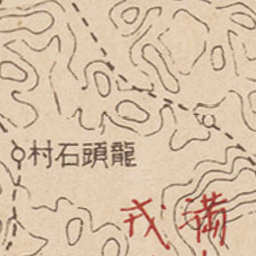 龍頭石村
滿戎